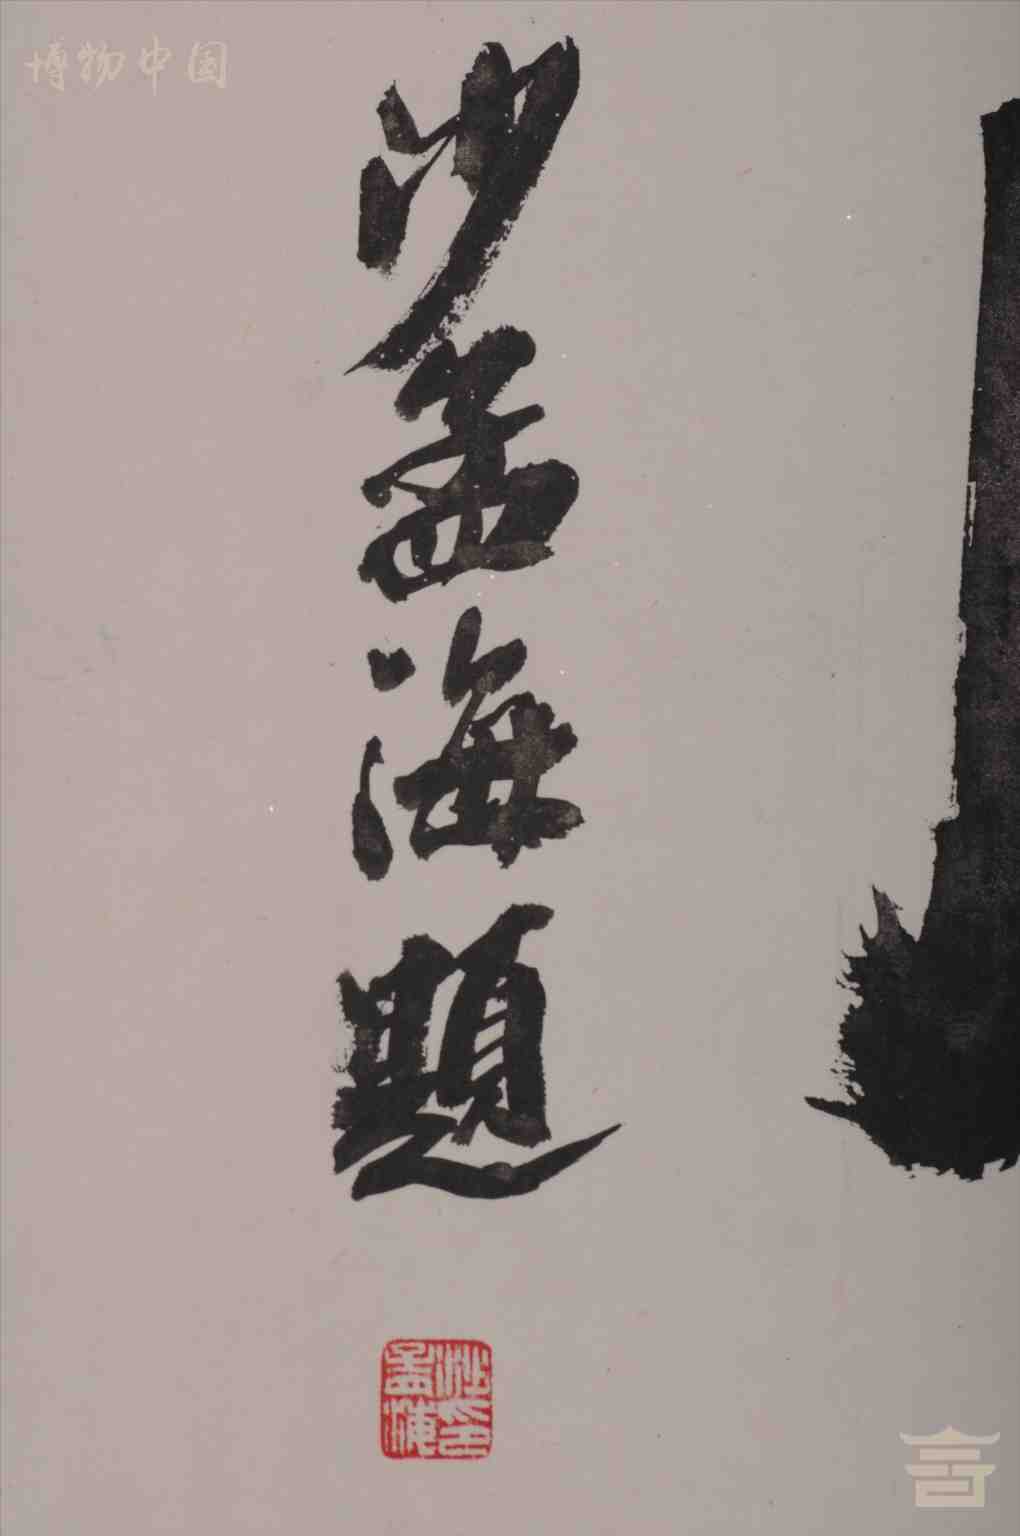 博物中国
沙孟海題
沙孟海印